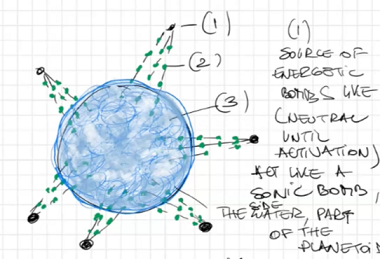 (1)
(2)
(3)
(1)
SOURCE OF
ENERGETIC
BOMBS LIKE
(NEUTRAL
UNTIL
ACTIVATION)
ACT LIKE A
SONIC BOMB,
SIDE
THE WATER, PART
OF THE
PLANETOID